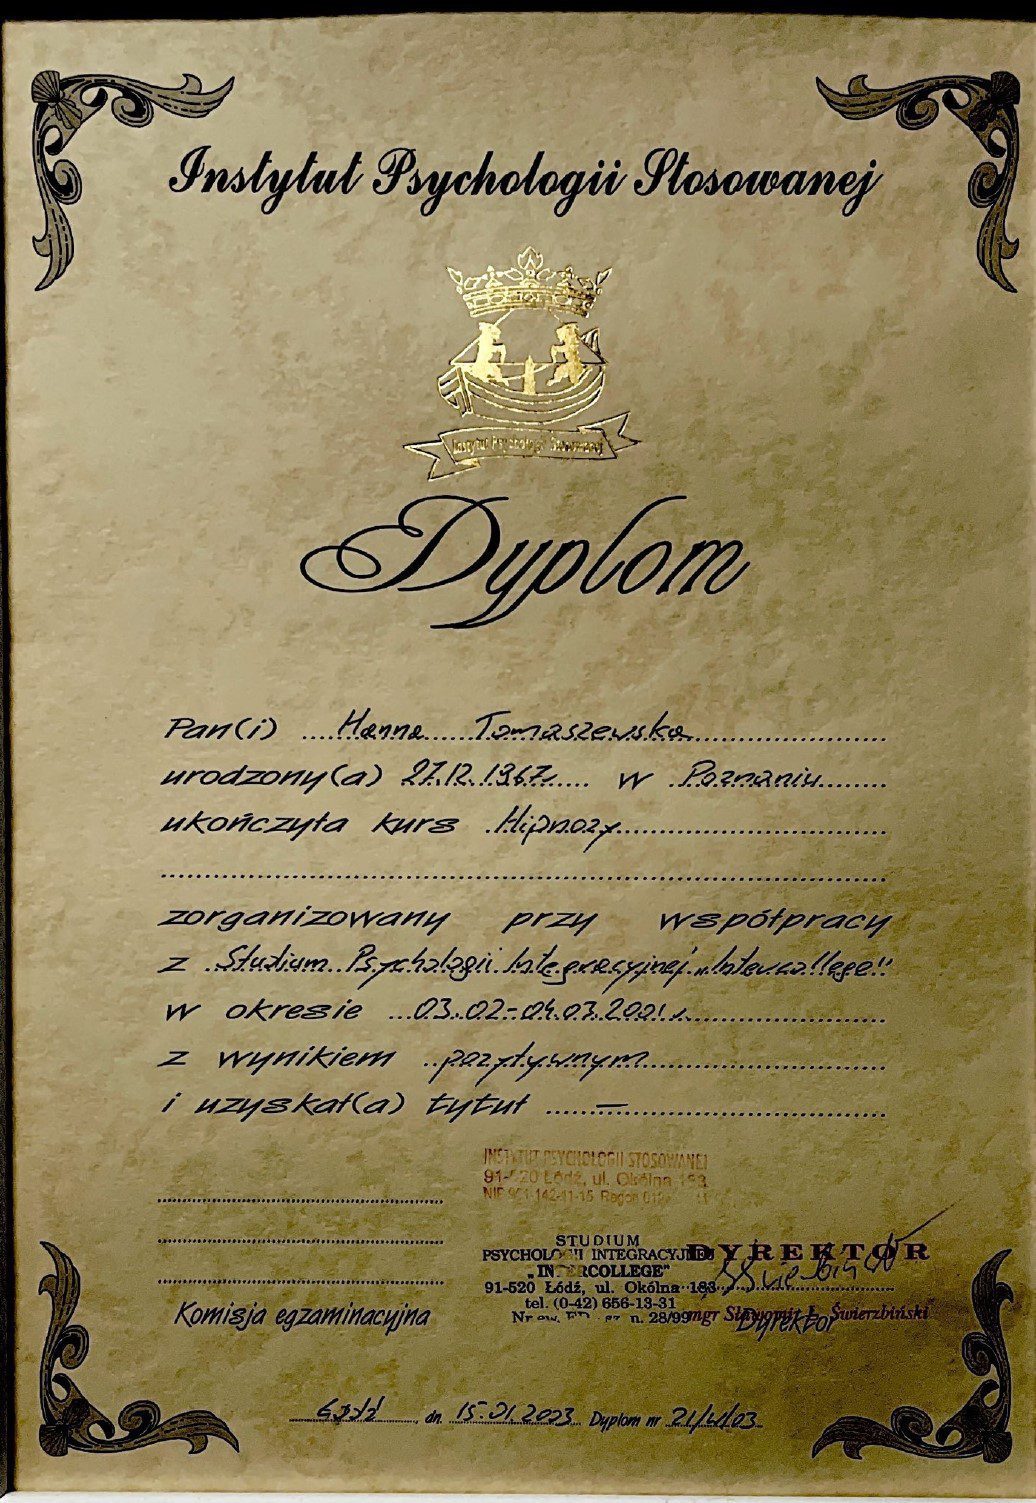 Instytut Psychologii Stosowanej
Instytut Psychologii Stosowanej
Dyplom
Pan(i) Hanna Tomaszewska
urodzony(a) 27.12.1967 w Poznaniu
ukończyła kurs Hipnozy
zorganizowany przy współpracy
z Studium Psychologii Integracyjnej „Intercollege"
w okresie 03.02-04.03.2001
z wynikiem pozytywnym
i uzyskał(a) tytuł —
INSTYTUT PSYCHOLOGII STOSOWANEJ
91-520 Łódź, ul. Okólna 183
NIP 142-11-15 Regon
STUDIUM
PSYCHOLOGII INTEGRACYJNEJ
„INTERCOLLEGE"
91-520 Łódź, ul. Okólna 183
tel. (0-42) 656-13-31
Nr ew. n. 28/99
DYREKTOR
mgr Sławomir Świerzbiński
Dyrektor
Komisja egzaminacyjna
Łódź, dn. 15.01.2003 Dyplom nr